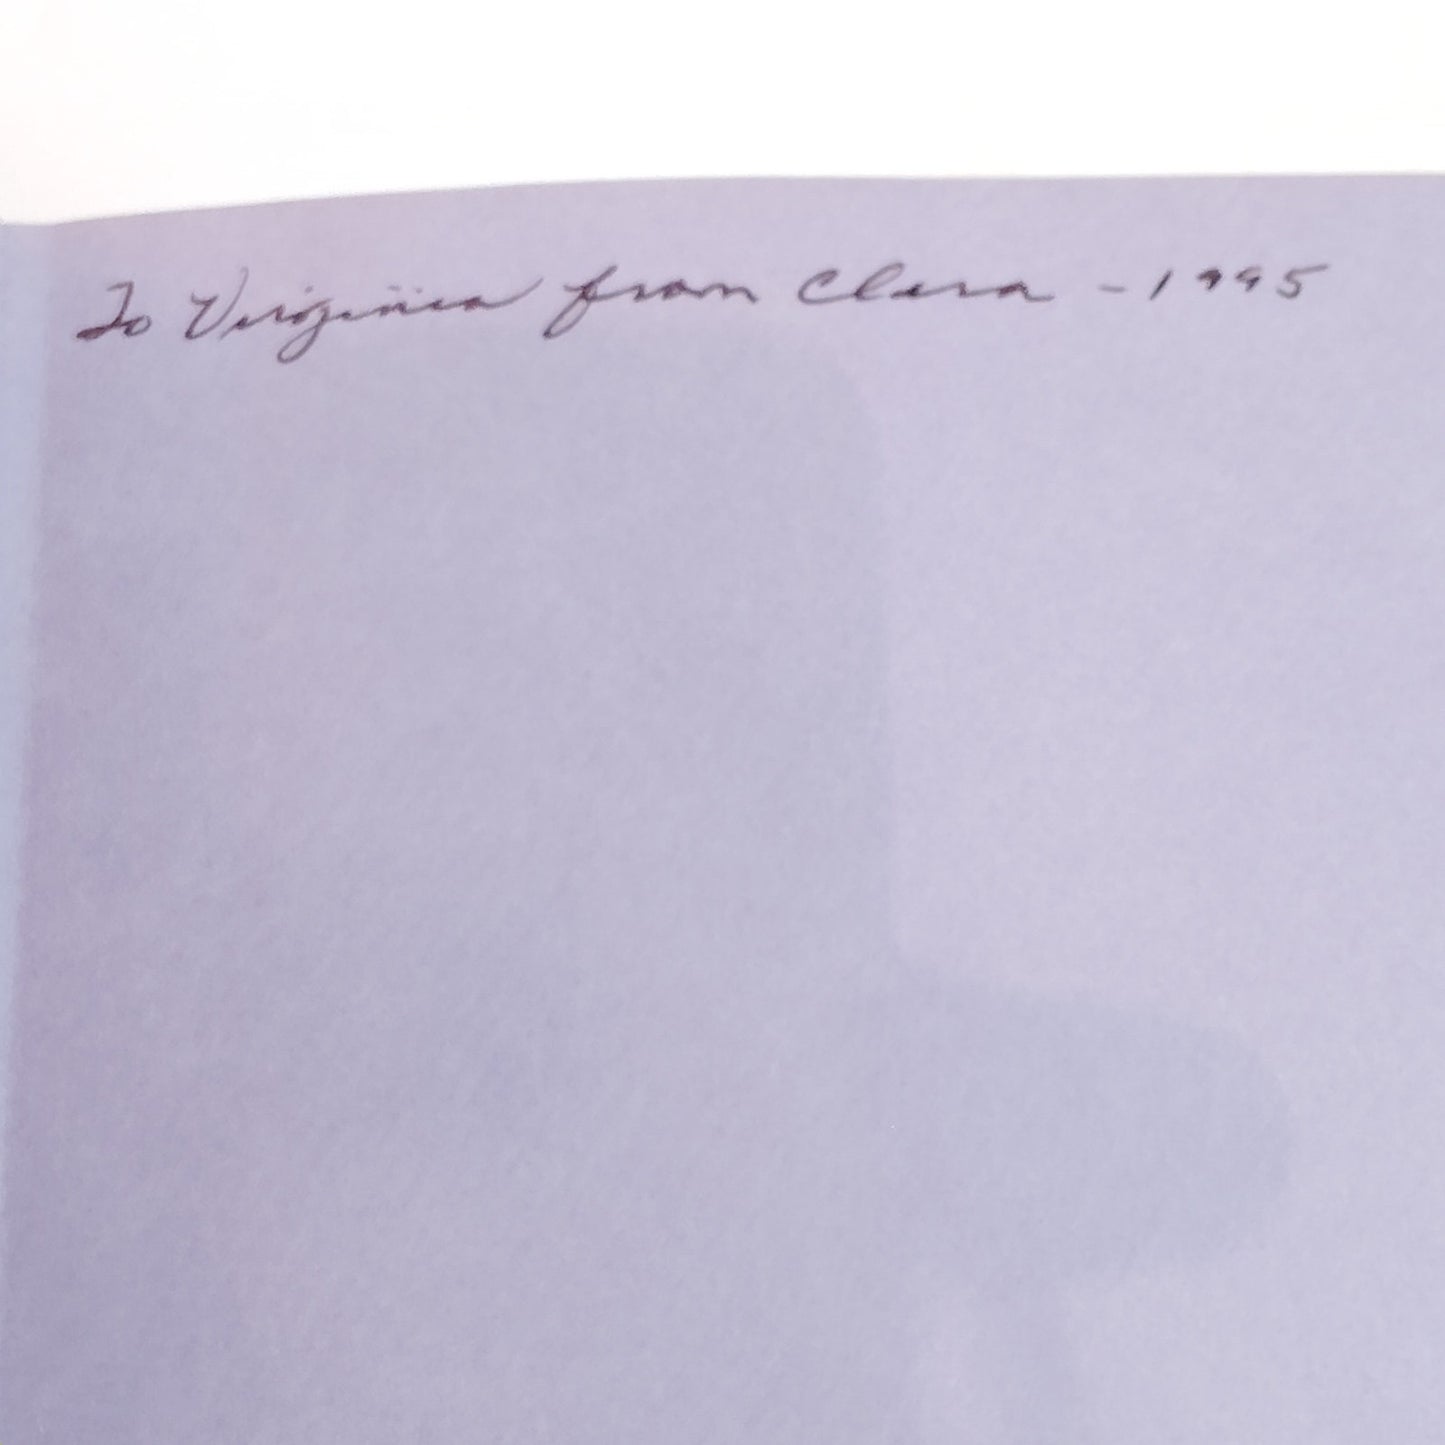 To Virginia from Clara - 1995